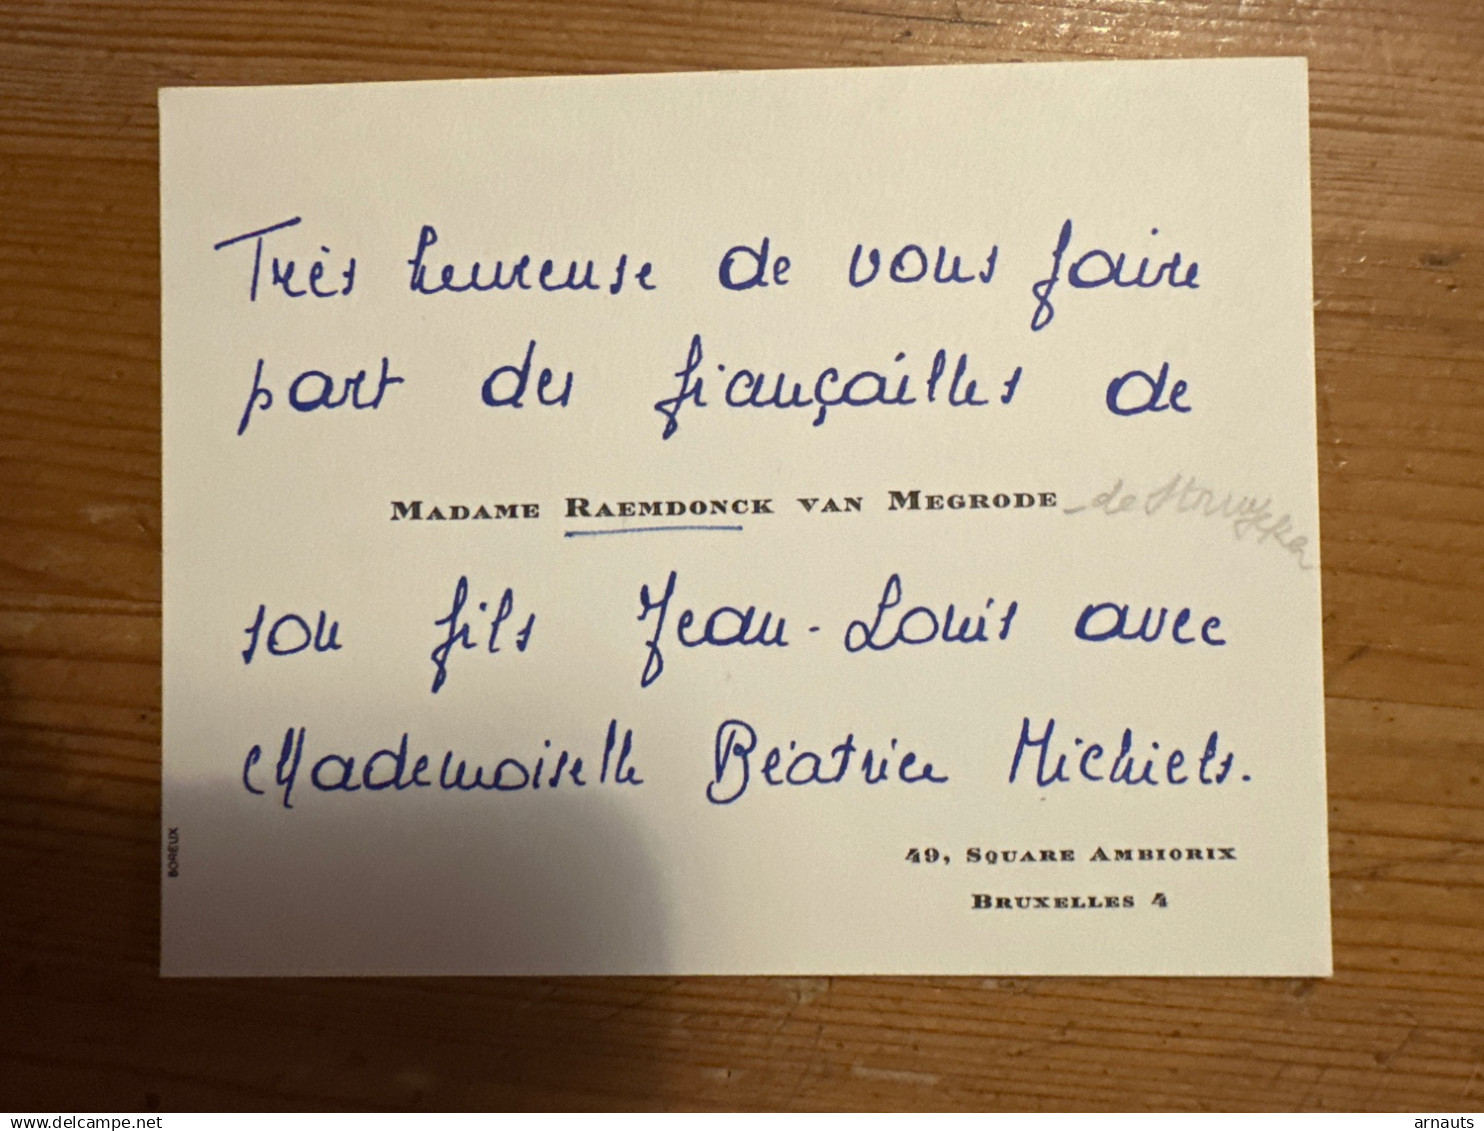 Très heureuse de vous faire
part des fiançailles de
MADAME RAEMDONCK VAN MEGRODE - de
son fils Jean-Louis avec
Mademoiselle Béatrice Michiels.
49, SQUARE AMBIORIX
BRUXELLES 4
BOREUX
www.delcampe.net
arnauts